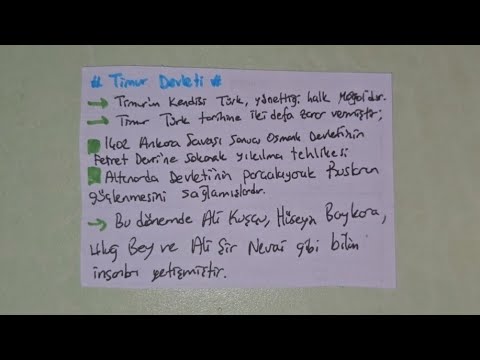 # Timur Devleti #
→ Timur'un kendisi Türk, yönettiği halk Moğol'dur.
→ Timur Türk tarihine iki defa zarar vermiştir;
1402 Ankara Savaşı sonucu Osmanlı Devleti'nin
Fetret Devri'ne sokarak yıkılma tehlikesi
Altınorda Devleti'nin parçalayarak Rusların
güçlenmesini sağlamışlardır.
→ Bu dönemde Ali Kuşçu, Hüseyin Baykara,
Uluğ Bey ve Ali Şir Nevai gibi bilim
insanları yetişmiştir.